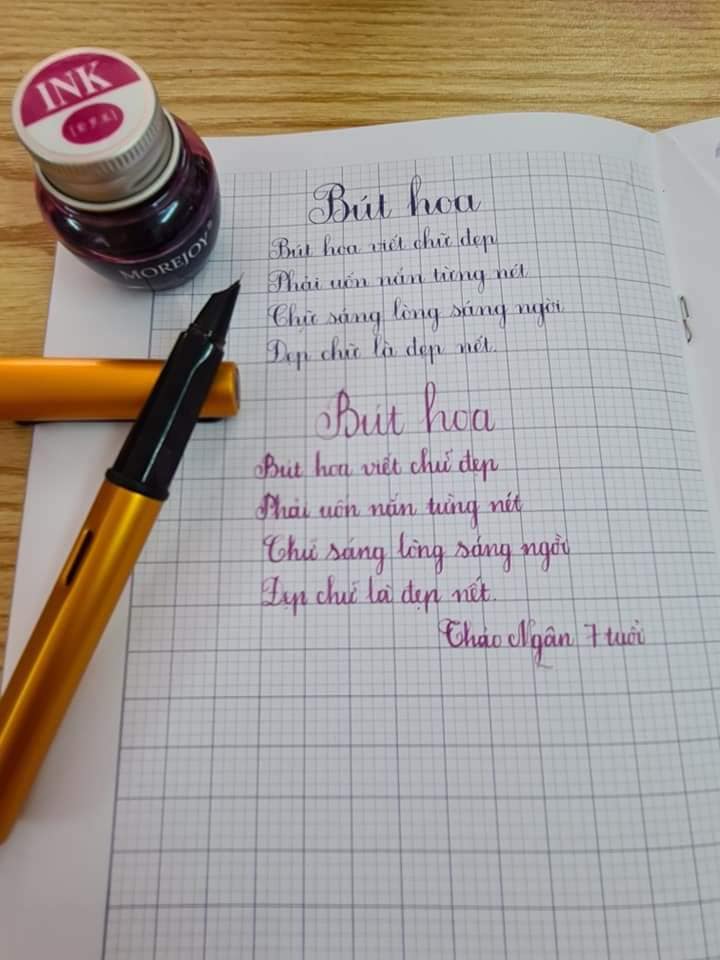 INK
MOREJOY
Bút hoa
Bút hoa viết chữ đẹp
Phải uốn nắn từng nét
Chữ sáng lòng sáng ngời
Đẹp chữ là đẹp nết.
Bút hoa
Bút hoa viết chữ đẹp
Phải uốn nắn từng nét
Chữ sáng lòng sáng ngời
Đẹp chữ là đẹp nết.
Thảo Ngân 7 tuổi